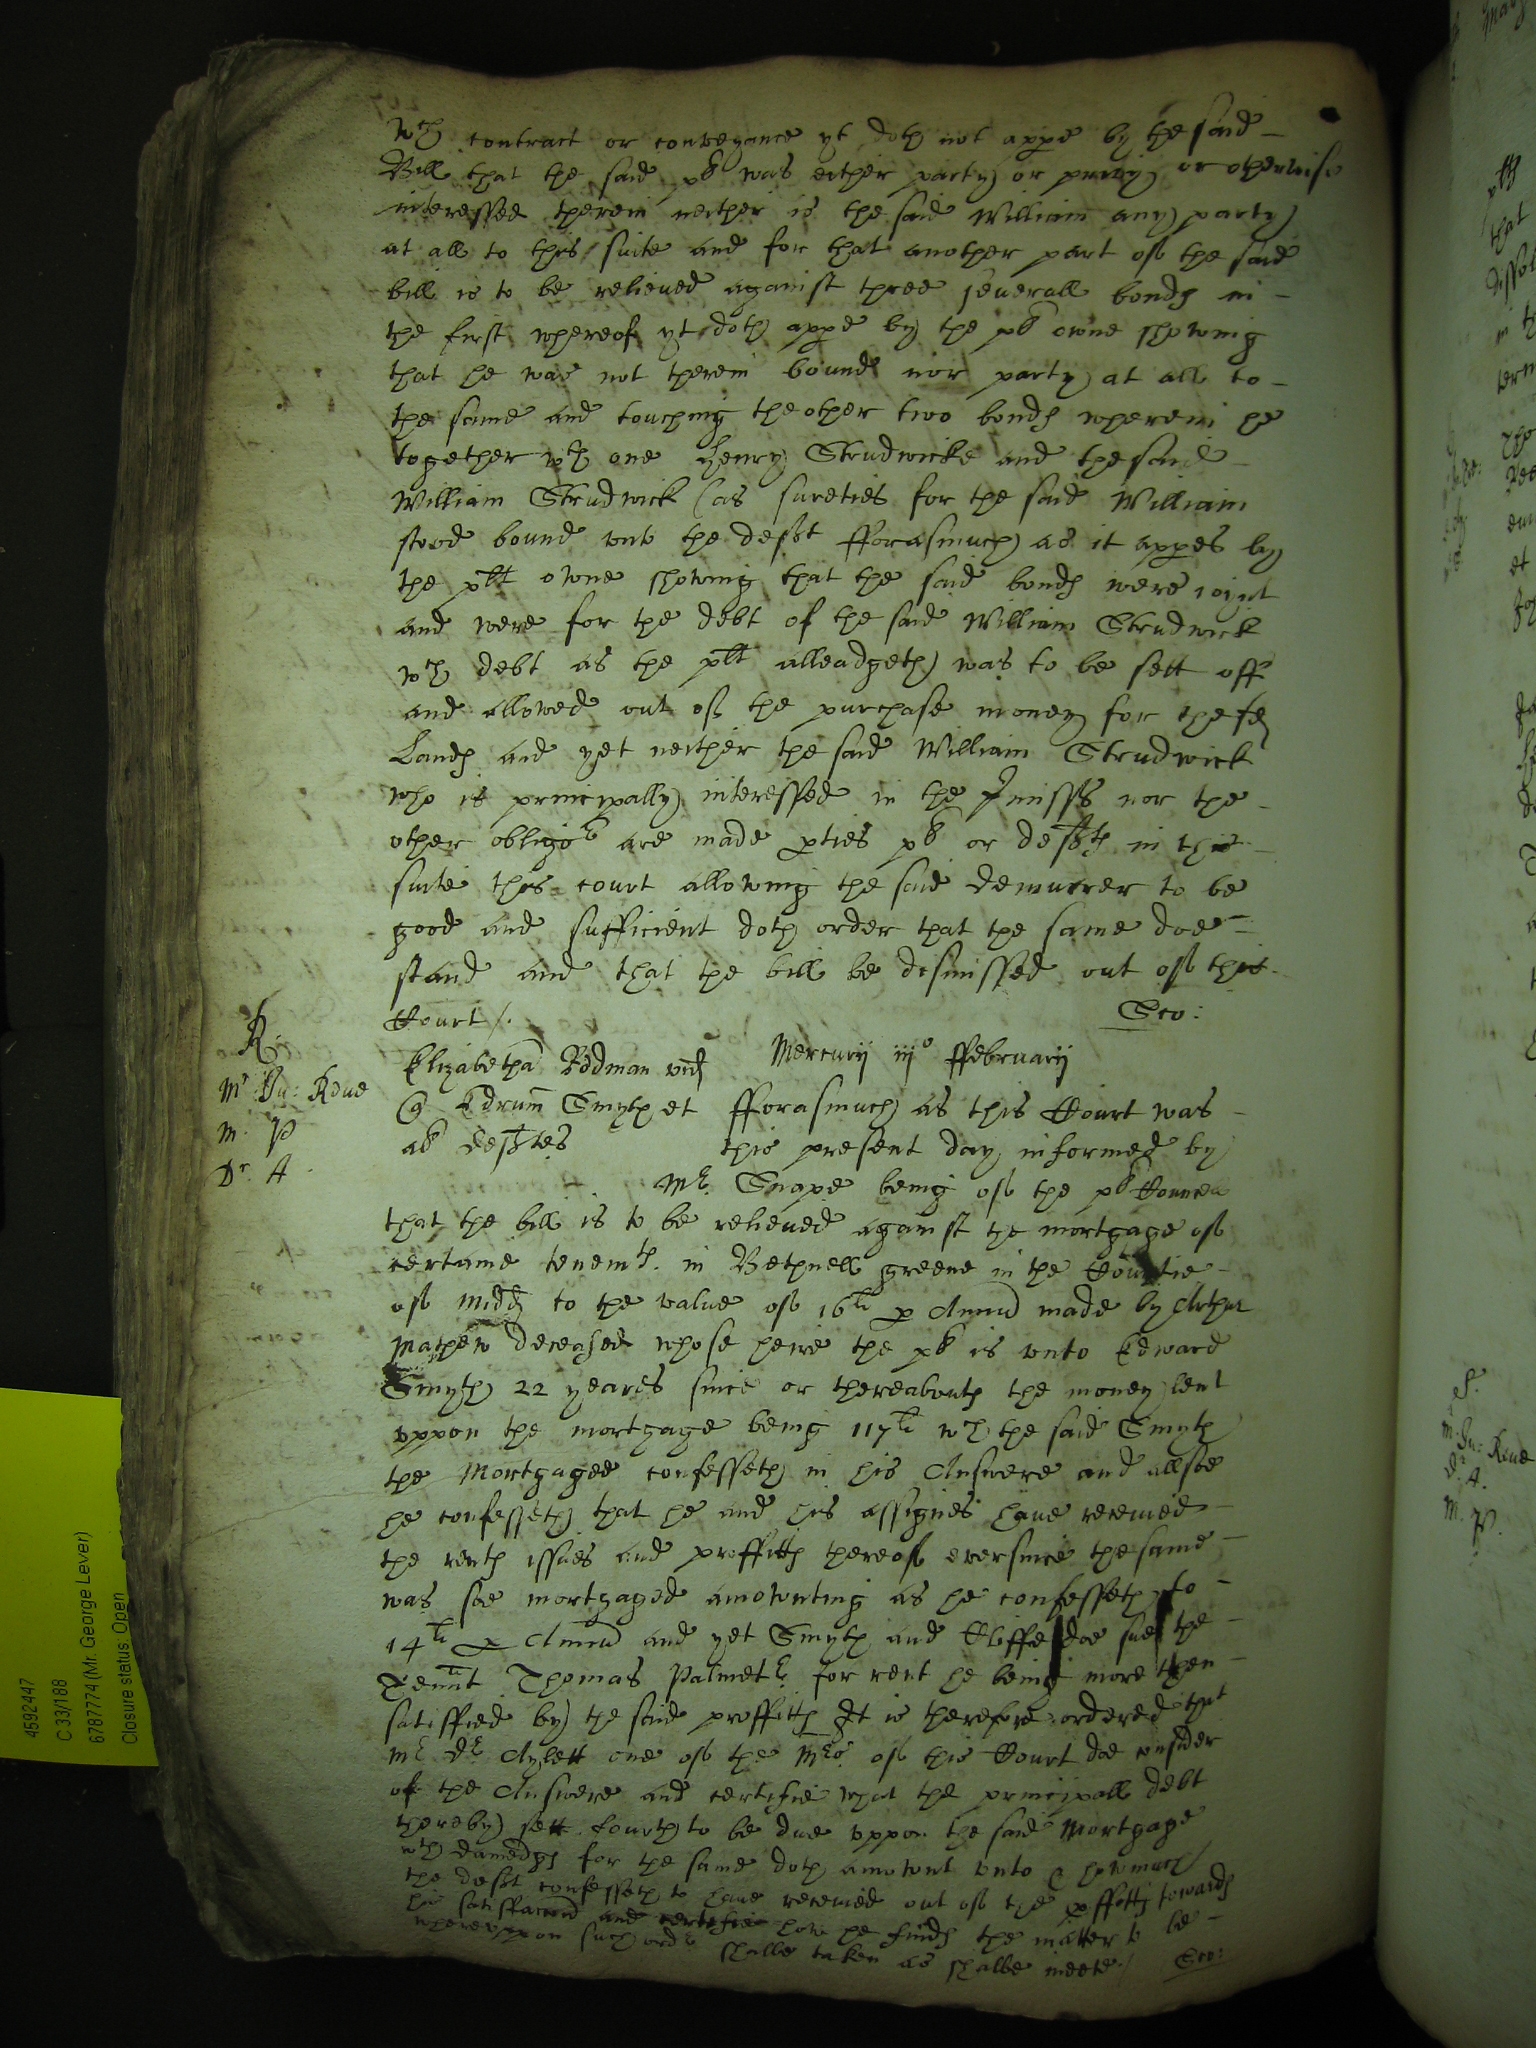 wch contract or conveyance yt doth not appe by the said
Bill that the said pl was either party or privy or otherwise
interessed therein neither is the said William any party
at all to this suite and for that another part of the said
bill is to be relieved against three severall bonds in
the first whereof yt doth appe by the pl owne shewing
that he was not therein bound nor party at all to
the same and touching the other two bonds wherein he
together wth one Henry Strudwicke and the said
William Strudwick (as sureties for the said William
stood bound unto the deft fforasmuch as it appes by
the plt owne shewing that the said bonds were ioynt
and were for the debt of the said William Strudwick
wch debt as the plt alleadgeth was to be sett off
and allowed out of the purchase money for the sd
Lands and yet neither the said William Strudwick
who is principally interessed in the pmisses nor the
other obligor are made pties pl or defts in this
suite this court allowing the said demurrer to be
good and sufficient doth order that the same doe
stand and that the bill be dismissed out of this
Court /.
R.
Mr Ju: Reve
m. P
Dr. A.
Elizabetha Rodman vid
Mercurij iijo ffebruarij
Edrum Smyth et
al deftes
fforasmuch as this Court was
this present day informed by
Mr. Snape being of the pl Councell
that the bill is to be relieved against the mortgage of
certaine tenemts. in Bethnell greene in the Countie
of Midd to the value of 16li p Annu made by Arthur
Mathew deceased whose heire the pl is unto Edward
Smyth 22 yeares since or thereabouts the money lent
uppon the mortgage being 117li wch the said Smyth
the Mortgagee confesseth in his Answere and allsoe
he confesseth that he and his assignes have received
the rents issues and proffitts thereof ever since the same
was soe mortgaged amownting as he confesseth to
14li p Annu and yet Smyth and Cliffe doe sue the
Tennt Thomas Palmer for rent he being more then
satisfied by the said proffitts It is therefore ordered that
Mr. Dr. Aylett one of the Mrs of this Court doe consider
of the Answere and certifie what the principall debt
thereby sett fourth to be due uppon the said Mortgage
wth damedgs for the same doth amownt unto & howmuch
the deft confesseth to have received out of the pffitts towards
his satisfaccon and certifie how he finds the matter to be
whereuppon such order shalbe taken as shalbe meete /
4592447
C 33/188
6787774 (Mr. George Lever)
Closure status: Open